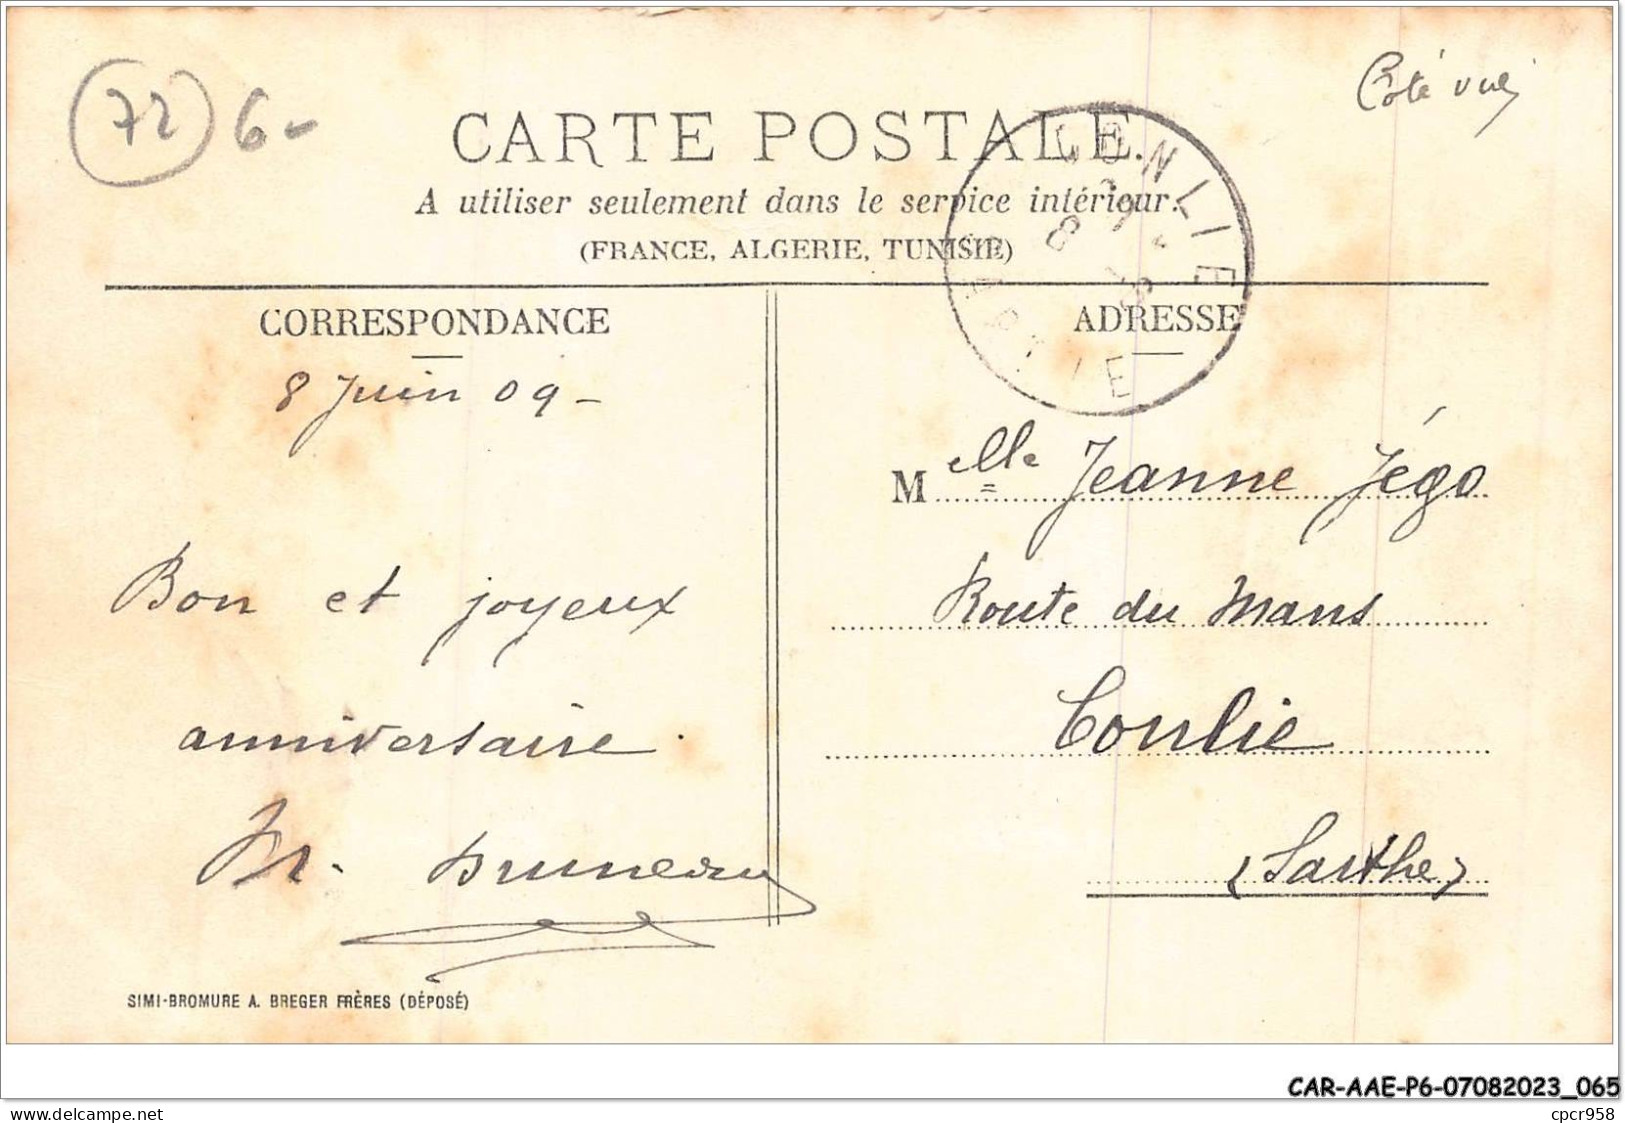 72 6-
Côté vue
CARTE POSTALE.
A utiliser seulement dans le service intérieur.
(FRANCE, ALGERIE, TUNISIE)
CONLIE
8
SARTHE
CORRESPONDANCE
8 Juin 09 -
Bon et joyeux
anniversaire.
ADRESSE
Melle Jeanne Jégo
Route du Mans
Conlie
(Sarthe)
SIMI-BROMURE A. BREGER FRÈRES (DÉPOSÉ)
CAR-AAE-P6-07082023_065
delcampe.net
cpcr958